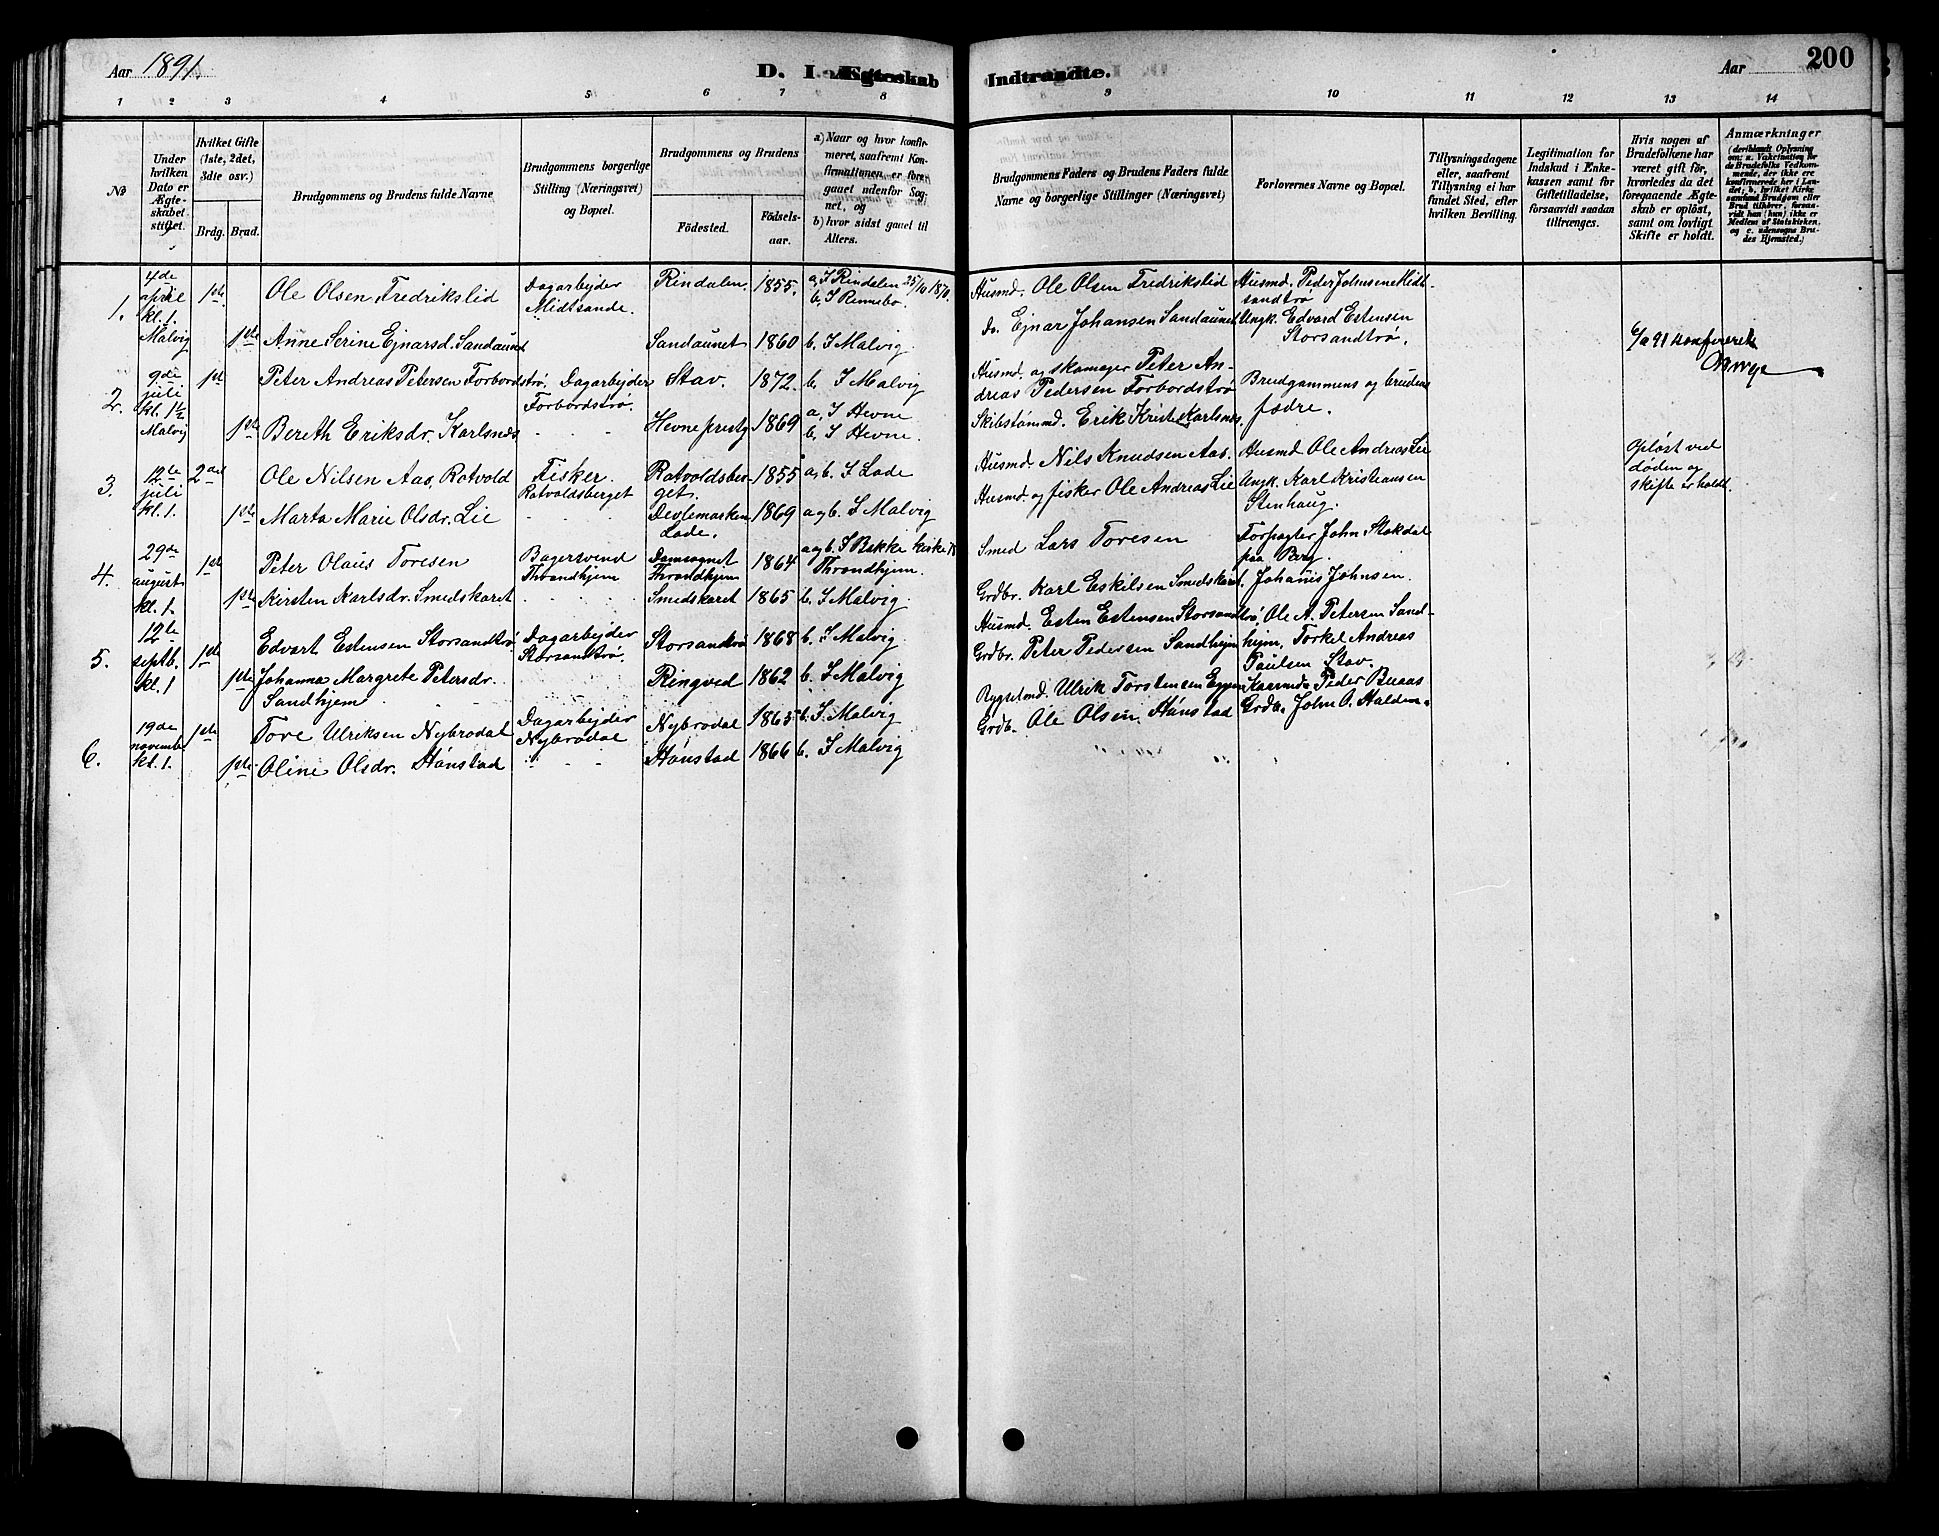 Aar 1891.
D. I Ægteskab Indtraadte.
Aar 200
1 2 3 4 5 6 7 8 9 10 11 12 13 14
No
Under hvilken Dato er Ægteskabet stiftet.
Hvilket Gifte (1ste, 2det, 3die osv.)
Brdg. Brud.
Brudgommens og Brudens fulde Navne
Brudgommens borgerlige Stilling (Næringsvei) og Bopæl.
Brudgommens og Brudens
Födested.
Födselsaar.
a) Naar og hvor konfirmeret, saafremt Konfirmationen er foregaaet udenfor Sognet, og
b) hvor sidst gaaet til Alters.
Brudgommens Faders og Brudens Faders fulde Navne og borgerlige Stillinger (Næringsvei)
Forlovernes Navne og Bopæl.
Tillysningsdagene eller, saafremt Tillysning ei har fundet Sted, efter hvilken Bevilling.
Legitimation for Indskud i Enkekassen samt for Giftetilladelse, forsaavidt saadan tiltrænges.
Hvis nogen af Brudefolkene har været gift för, hvorledes da det foregaaende Ægteskab er oplöst, samt om lovligt Skifte er holdt.
Anmærkninger (deriblandt Oplysning om: a. Vakcination for de Brudefolks Vedkommende, der ikke ere konfirmerede her i Landet; b. hvilket Kirkesamfund Brudgom eller Brud tilhörer, forsaavidt han (hun) ikke er Medlem af Statskirken, og c. udensogns Brudes Hjemsted.)
1. 4de april kl. 1. Malvig 1ste Ole Olsen Fredrikslid Dagarbejder Midtsande. Rindalen 1855. a, I Rindalen 25/10 1870. b, I Rennebo. Husmd. Ole Olsen Fredrikslid Husmd. Peder Johnsen Midtsandtrø
1ste Anne Serine Ejnarsd. Sandaunet Sandaunet 1860 b. I Malvig Do. Ejnar Johansen Sandaunet Ungk. Edvard Estensen Storsandtrø.
2. 9de juli kl. 1½ Malvig 1ste Peter Andreas Petersen Forbordstrø. Dagarbejder Forbordstrø. Stav. 1872. b. I Malvig Husmd. og skomager Peter Andreas Pedersen Forbordstrø Brudgommens og brudens fædre.
1ste Bereth Eriksdr. Karlsnes - - - Hevne prestg 1869 a, I Hevne b. I Hevne. Skibstømmd. Erik Krist. Karlsnes
3. 12te juli kl. 1. 2det Ole Nilsen Aas, Rotvold Fisker. Rotvoldsberget Rotvoldsberget. 1855 a, b. I Lade Husmd. Nils Knudsen Aas. Husmd Ole Andreas Lie Opløst ved døden og skifte er holdt.
1ste Marta Marie Olsdr. Lie - - - Devlemarken Lade. 1869 a og b. I Malvig Husmd. og fisker Ole Andreas Lie Ungk. Karl Kristiansen Stenhaug.
4. 29de august kl. 1. 1ste Peter Olaus Toresen Bagersvend Throndhjem Domsognet Throndhjem 1864 a og b. I Bakke kirke Throndhjem. Smed Lars Toresen Forpagter John Stokdal paa Berg.
1ste Kirsten Karlsdr. Smedskaret - - - Smedskaret 1865 b. I Malvig. Grdbr. Karl Eskilsen Smedskaret. Johanis Johnsen.
5. 12te septb. kl. 1 1ste Edvart Estensen Storsandtrø Dagarbejder Storsandtrø. Storsandtrø 1868 b. I Malvig Husmd. Esten Estensen Storsandtrø, Ole A. Petersen Sandhejm, Torkel Andreas Paulsen Stav.
1ste Johanna Margrete Petersdr. Sandhjem - - - Ringved 1862 b. I Malvig Grdbr. Peter Pedersen Sandhejm
6. 19de november kl. 1. 1ste Tore Ulriksen Nybrodal Dagarbejder Nybrodal Nybrodal 1865 b. I Malvig Rygselmd. Ulrik Torstensen Eggen Peder Buaas
1ste Oline Olsdr. Hønstad " - - Hønstad 1866 b. I Malvig Grdb. Ole Olsen Hønstad Grdb. John O. Haldem